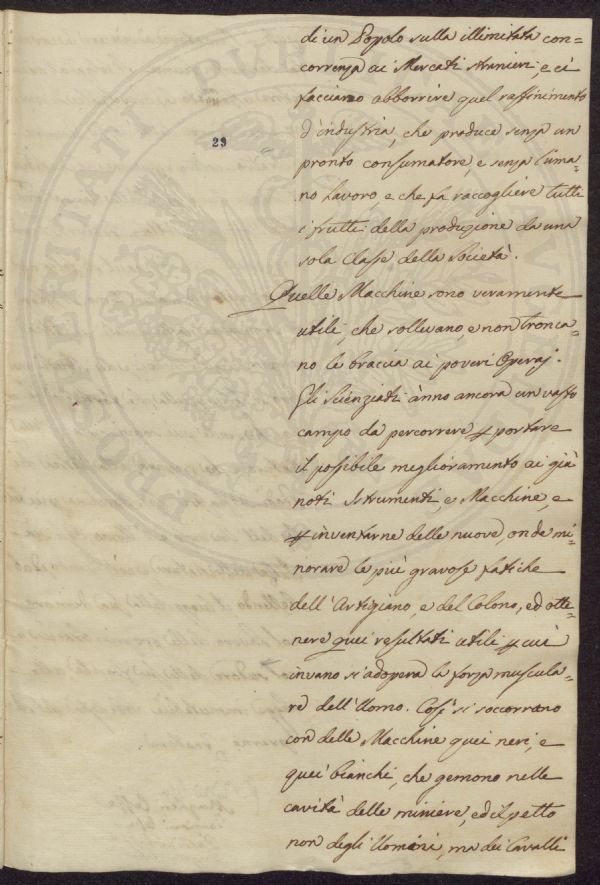 di un Popolo sulla illimitata con=
correnza ai Mercati stranieri, e ci
facciano abborrire quel raffinimento
29
d'industria, che produce senza un
pronto consumatore, e senza l'uma=
no lavoro, e che fa raccogliere tutti
i frutti della produzione da una
sola Classe della Società.
Quelle Macchine sono veramente
utili, che sollevano, e non tronca=
no le braccia ai poveri Operaj.
Gli Scienziati ànno ancora un vasto
campo da percorrere p portare
il possibile miglioramento ai già
noti Istrumenti, e Macchine, e
p inventarne delle nuove, onde mi=
norare le più gravose fatiche
dell'Artigiano, e del Colono, ed otte=
nere quei resultati utili p cui
invano si adopera la forza muscula=
re dell'Uomo. Così si soccorrano
con delle Macchine quei neri, e
quei bianchi, che gemono nelle
cavità delle miniere, ed il petto
non degli Uomini, ma dei Cavalli